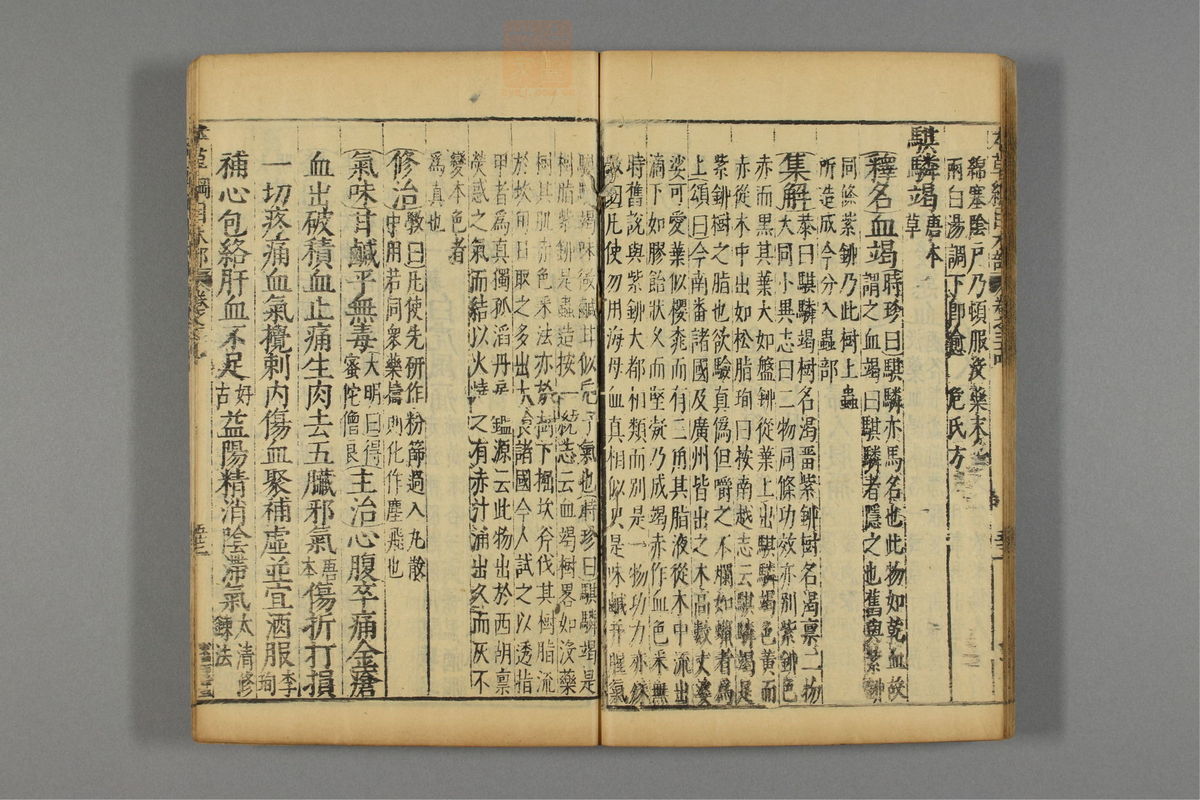 綿塞陰戶乃頓服沒藥末
兩白湯調下卽愈 危氏方
騏驎竭唐本草
釋名血竭時珍曰騏驎亦馬名也此物如乾血故
謂之血竭曰騏驎者隱之也舊與紫鉚
同條紫鉚乃此樹上蟲
所造成今分入蟲部
集解恭曰騏驎竭樹名渴畱紫鉚樹名渴禀二物
大同小異志曰二物同條功效亦別紫鉚色
赤而黑其葉大如盤鉚從葉上出騏驎竭色黃而
赤從木中出如松脂珣曰按南越志云騏驎竭是
紫鉚樹之脂也欲驗真僞但嚼之不爛如蠟者爲
上頌曰今南番諸國及廣州皆出之木高數丈婆
娑可愛葉似櫻桃而有三角其脂液從木中流出
滴下如膠飴狀久而堅凝乃成竭赤作血色采無
時舊說與紫鉚大都相類而別是一物功力亦殊
斅曰凡使勿用海母血真相似只是味鹹并腥氣
騏驎竭味微鹹甘似卮子氣也時珍曰騏驎竭是
樹脂紫鉚是蟲造按一統志云血竭樹畧如沒藥
樹其肌赤色采法亦於樹下掘坎斧伐其樹脂流
於坎旬日取之多出大食諸國今人試之以透指
甲者爲真獨孤滔丹房鑑源云此物出於西胡禀
熒惑之氣而結以火燒之有赤汁涌出久而灰不
變本色者
爲真也
修治斅曰凡使先研作粉篩過入丸散
中用若同衆藥擣則化作塵飛也
氣味甘鹹平無毒大明曰得蜜陀僧良主治心腹卒痛金瘡
血出破積血止痛生肉去五臟邪氣唐本傷折打損
一切疼痛血氣攪刺內傷血聚補虛並宜酒服李珣
補心包絡肝血不足好古益陽精消陰滯氣太清修鍊法